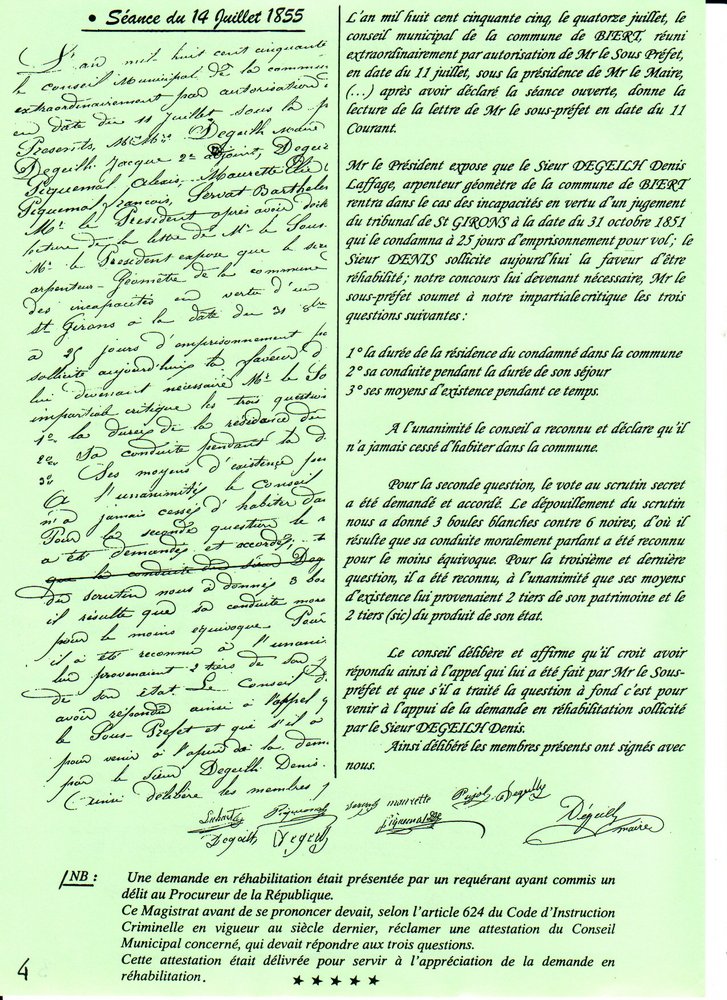 • Séance du 14 Juillet 1855
L'an mil huit cent cinquante
le conseil Municipal de la commun
extraordinairement par autorisation d
en date du 11 Juillet sous la p
Présents, Mrs Mrs Degeilh Maire
Degeilh Jacque 2e adjoint, Degei
Piquemal Alexis, Maurette Elie
Piquemal francois, Servat Barthele
Mr. le Président après avoir
lecture de la lettre de Mr. le Sous-
Mr. le Président expose que le sieu
arpenteur-Géomètre de la commune
des incapacités en vertu d'un
St Girons à la date du 31 8bre
à 25 jours d'emprisonnement po
sollicite aujourd'hui la faveur d
lui devenant nécessaire Mr. le So
impartiale critique les trois question
1o. la durée de la résidence du
2o. Sa conduite pendant la d
3o. Ses moyens d'existence pen
A l'unanimité le Conseil
n'a jamais cessé d'habiter dan
Pour la seconde question le v
a été demandé et accordé,
que la conduite du sieur Deg
du scrutin nous a donnés 3 bou
il résulte que sa conduite mora
pour le moins équivoque. Pour
il a été reconnu à l'unani
lui provenaient 2 tiers de son p
de son état. Le Conseil d
avoir répondu ainsi à l'appel q
le Sous-Préfet et que s'il a
pour venir à l'apui de la dem
par le sieur Degeilh Denis.
Ainsi délibéré les membres p
L'an mil huit cent cinquante cinq, le quatorze juillet, le
conseil municipal de la commune de BIERT, réuni
extraordinairement par autorisation de Mr le Sous Préfet,
en date du 11 juillet, sous la présidence de Mr le Maire,
(...) après avoir déclaré la séance ouverte, donne la
lecture de la lettre de Mr le sous-préfet en date du 11
Courant.
Mr le Président expose que le Sieur DEGEILH Denis
Laffage, arpenteur géomètre de la commune de BIERT
rentra dans le cas des incapacités en vertu d'un jugement
du tribunal de St GIRONS à la date du 31 octobre 1851
qui le condamna à 25 jours d'emprisonnement pour vol ; le
Sieur DENIS sollicite aujourd'hui la faveur d'être
réhabilité ; notre concours lui devenant nécessaire, Mr le
sous-préfet soumet à notre impartiale critique les trois
questions suivantes :
1° la durée de la résidence du condamné dans la commune
2° sa conduite pendant la durée de son séjour
3° ses moyens d'existence pendant ce temps.
A l'unanimité le conseil a reconnu et déclare qu'il
n'a jamais cessé d'habiter dans la commune.
Pour la seconde question, le vote au scrutin secret
a été demandé et accordé. Le dépouillement du scrutin
nous a donné 3 boules blanches contre 6 noires, d'où il
résulte que sa conduite moralement parlant a été reconnu
pour le moins équivoque. Pour la troisième et dernière
question, il a été reconnu, à l'unanimité que ses moyens
d'existence lui provenaient 2 tiers de son patrimoine et le
2 tiers (sic) du produit de son état.
Le conseil délibère et affirme qu'il croit avoir
répondu ainsi à l'appel qui lui a été fait par Mr le Sous-
préfet et que s'il a traité la question à fond c'est pour
venir à l'appui de la demande en réhabilitation sollicité
par le Sieur DEGEILH Denis.
Ainsi délibéré les membres présents ont signés avec
nous.
Piquemal Servat maurette Pujol Degeilh
Degeilh Degeilh Piquemal Dégeilh
maire
NB : Une demande en réhabilitation était présentée par un requérant ayant commis un
délit au Procureur de la République.
Ce Magistrat avant de se prononcer devait, selon l'article 624 du Code d'Instruction
Criminelle en vigueur au siècle dernier, réclamer une attestation du Conseil
Municipal concerné, qui devait répondre aux trois questions.
Cette attestation était délivrée pour servir à l'appréciation de la demande en
réhabilitation.
★ ★ ★ ★ ★
4